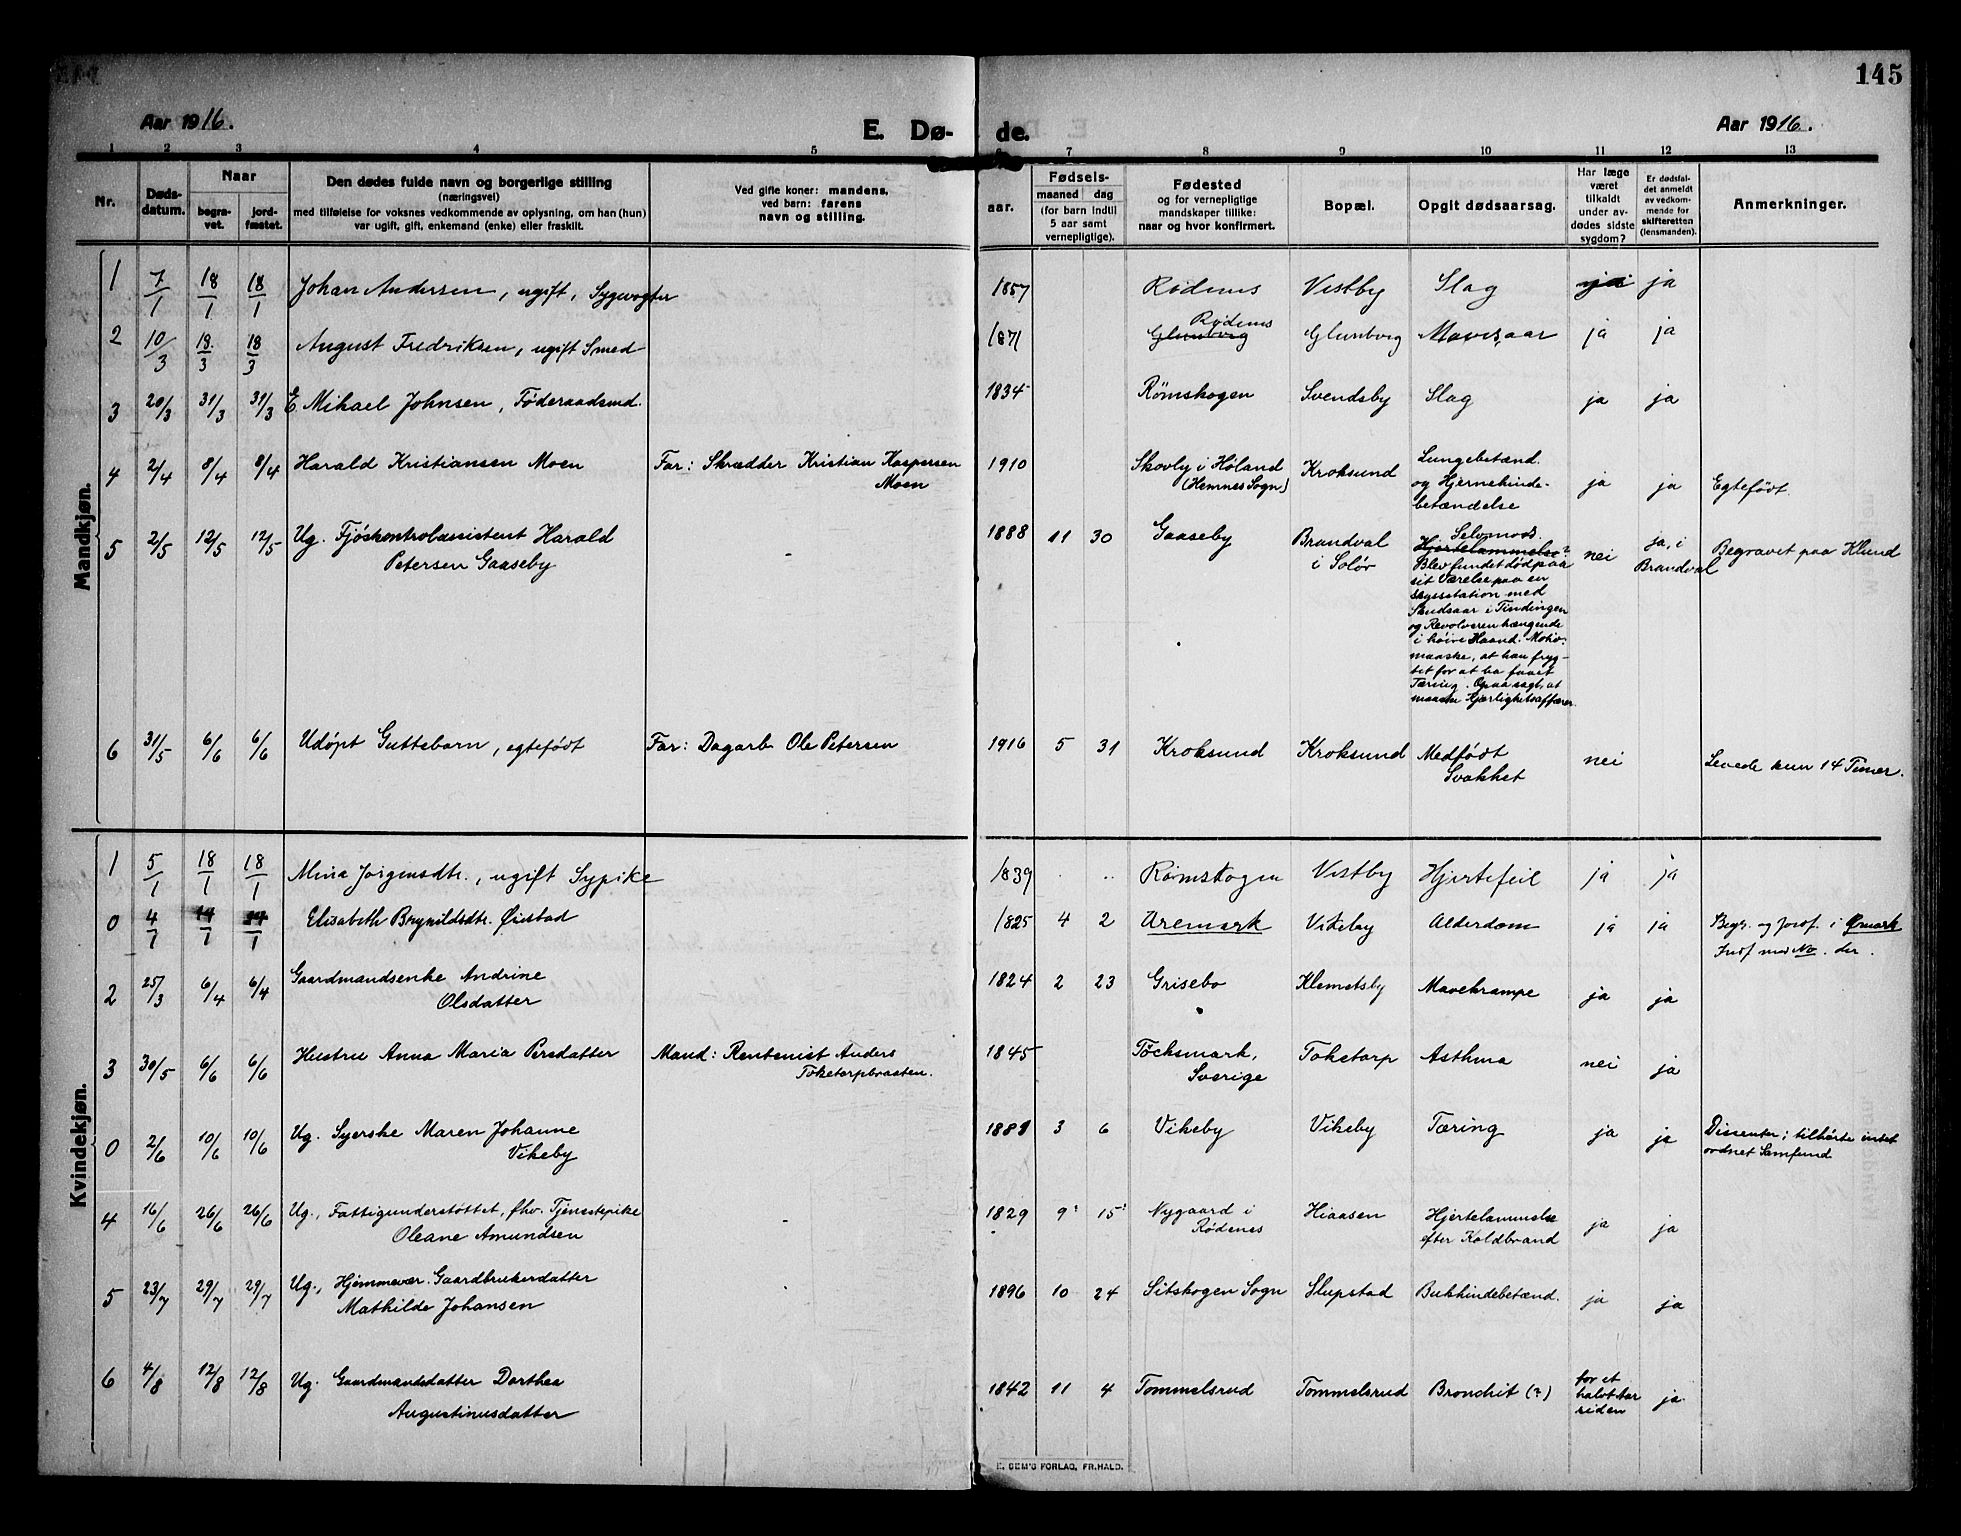 145
Aar 1916.
E. Dø-
de.
Aar 1916.
1 2 3 4 5 7 8 9 10 11 12 13
Nr.
Døds-
datum.
Naar
begra-
vet.
jord-
fæstet.
Den dødes fulde navn og borgerlige stilling
(næringsvei)
med tilføielse for voksnes vedkommende av oplysning, om han (hun)
var ugift, gift, enkemand (enke) eller fraskilt.
Ved gifte koner: mandens,
ved barn: farens
navn og stilling.
aar.
Fødsels-
maaned dag
(for barn indtil
5 aar samt
vernepligtige).
Fødested
og for vernepligtige
mandskaper tillike:
naar og hvor konfirmert.
Bopæl.
Opgit dødsaarsag.
Har læge
været
tilkaldt
under av-
dødes sidste
sygdom?
Er dødsfal-
det anmeldt
av vedkom-
mende for
skifteretten
(lensmanden).
Anmerkninger.
Mandkjøn.
1 7/1 18/1 18/1 Johan Andersen, ugift, Sygevogter 1857 Rødenes Vestby Slag ja
2 10/3 18/3 18/3 August Fredriksen, ugift Smed 1871 Glunberg Rødenes Glunberg Mavesaar ja ja
3 20/3 31/3 31/3 E Mikael Johnsen, Føderaadsmd. 1834 Rømskogen Svendsby Slag ja ja
4 2/4 8/4 8/4 Harald Kristiansen Moen Far: Skrædder Kristian Kaspersen
Moen 1910 Skovly i Høland
(Hemnes Sogn) Kroksund Lungebetænd.
og Hjernehinde-
betændelse ja ja Egtefødt.
5 2/5 12/5 12/5 Ug. Fjøskontrolassistent Harald
Petersen Gaaseby 1888 11 30 Gaaseby Brandval
i Solør Selvmord.
Hjertelammelse?
Blev fundet død paa
sit Værelse paa en
skysstation med
Skudsaar i Tindingen
og Revolveren hængende
i høire Haand. Motiv:
maaske, at han fryg-
tet for at ha faaet
Tæring. Ogsaa sagt, at
maaske Kjærlighetsaffærer. nei ja, i
Brandval Begravet paa Klund
6 31/5 6/6 6/6 Udøpt Guttebarn, egtefødt Far: Dagarb Ole Petersen 1916 5 31 Kroksund Kroksund Medfødt
Svakhet nei Levede kun 14 Timer.
Kvindekjøn.
1 5/1 18/1 18/1 Mina Jørgensdtr., ugift Sypike 1839 Rømskogen Vestby Hjertefeil ja ja
0 4/1 14/1 14/1 Elisabeth Brynildsdtr. Øistad 1825 4 2 Aremark Vikeby Alderdom ja ja Begr. og jordf. i Ømark
Indf med No. der.
2 25/3 6/4 6/4 Gaardmandsenke Andrine
Olsdatter 1824 2 23 Grisebo Klemetsby Mavekrampe ja ja
3 30/5 6/6 6/6 Hustru Anna Maria Persdatter Mand: Rentenist Anders
Toketorpbraaten. 1845 Tøcksmark,
Sverige Toketorp Asthma nei ja
0 2/6 10/6 10/6 Ug. Syerske Maren Johanne
Vikeby 1881 3 6 Vikeby Vikeby Tæring ja ja Dissenter; tilhørte intet
ordnet Samfund
4 16/6 26/6 26/6 Ug., Fattigunderstøttet, fhv. Tjenestepike
Oleane Amundsen 1829 9 15 Nygaard i
Rødenes Hiaasen Hjertelammelse
efter Koldbrand ja ja
5 23/7 29/7 29/7 Ug., Hjemmevær. Gaardbrukerdatter
Mathilde Johansen 1896 10 24 Sitskogen Sogn Slupstad Bukhindebetænd. ja ja
6 4/8 12/8 12/8 Ug. Gaardmandsdatter Dorthea
Augustinusdatter 1842 11 4 Tommelsrud Tommelsrud Bronchit (?) for et
halvt aar
siden ja
E. SEM'S FORLAG, FR.HALD.